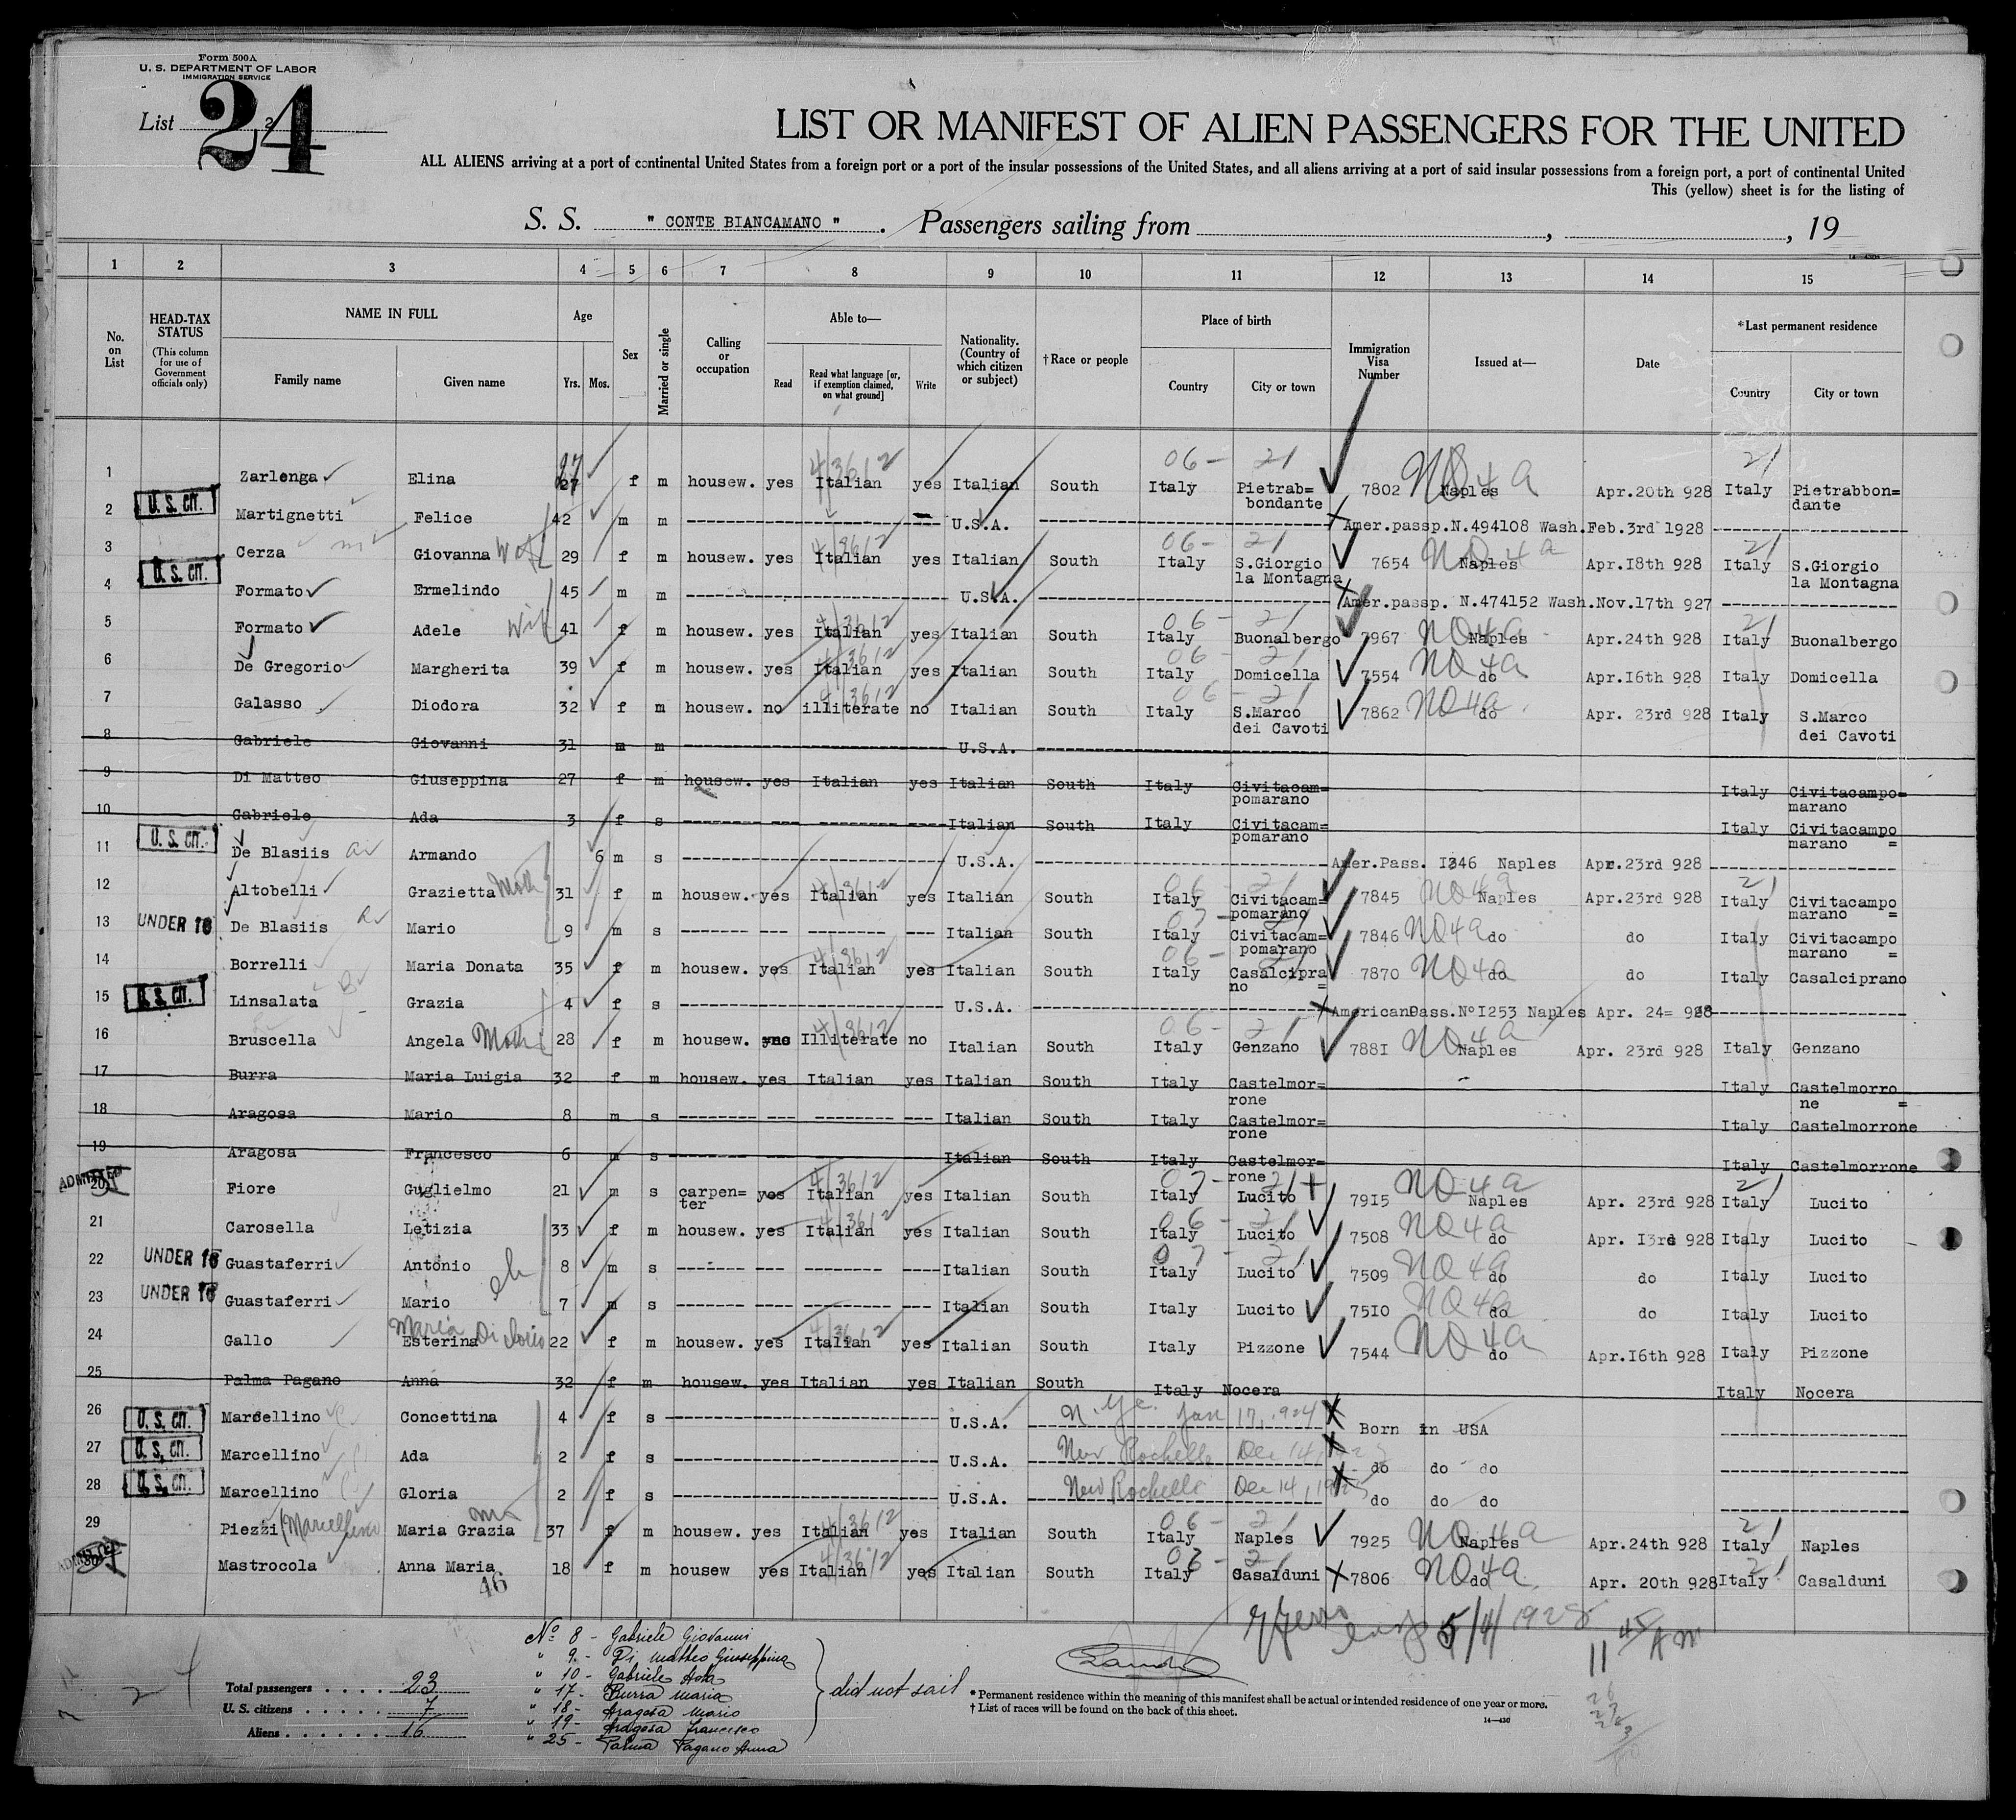 Form 500A
U. S. DEPARTMENT OF LABOR
IMMIGRATION SERVICE
List 2
24
LIST OR MANIFEST OF ALIEN PASSENGERS FOR THE UNITED
ALL ALIENS arriving at a port of continental United States from a foreign port or a port of the insular possessions of the United States, and all aliens arriving at a port of said insular possessions from a foreign port, a port of continental United
This (yellow) sheet is for the listing of
S. S. " CONTE BIANCAMANO " . Passengers sailing from , , 19
1 2 3 4 5 6 7 8 9 10 11 12 13 14 15
No. on List
HEAD-TAX STATUS
(This column for use of Government officials only)
NAME IN FULL
Family name Given name
Age
Yrs. Mos.
Sex
Married or single
Calling or occupation
Able to—
Read
Read what language [or, if exemption claimed, on what ground]
Write
Nationality. (Country of which citizen or subject)
†Race or people
Place of birth
Country City or town
Immigration Visa Number
Issued at—
Date
*Last permanent residence
Country City or town
1 Zarlenga Elina 27 f m housew. yes Italian yes Italian South Italy Pietrab= bondante 7802 Naples Apr.20th 928 Italy Pietrabbon= dante
2 U. S. CIT. Martignetti Felice 42 m m U.S.A. Amer.passp.N.494108 Wash.Feb.3rd 1928
3 Cerza Giovanna Wif 29 f m housew. yes Italian yes Italian South Italy S.Giorgio la Montagna 7654 Naples Apr.18th 928 Italy S.Giorgio la Montagna
4 U. S. CIT. Formato Ermelindo 45 m m U.S.A. Amer.passp. N.474152 Wash.Nov.17th 927
5 Formato Adele Wif 41 f m housew. yes Italian yes Italian South Italy Buonalbergo 7967 Naples Apr.24th 928 Italy Buonalbergo
6 De Gregorio Margherita 39 f m housew. yes Italian yes Italian South Italy Domicella 7554 do Apr.16th 928 Italy Domicella
7 Galasso Diodora 32 f m housew. no illiterate no Italian South Italy S.Marco dei Cavoti 7862 do Apr. 23rd 928 Italy S.Marco dei Cavoti
8 Gabriele Giovanni 31 m m U.S.A.
9 Di Matteo Giuseppina 27 f m housew. yes Italian yes Italian South Italy Civitacam= pomarano Italy Civitacampo= marano
10 Gabriele Ada 3 f s Italian South Italy Civitacam= pomarano Italy Civitacampo marano =
11 U. S. CIT. De Blasiis Armando 6 m s U.S.A. Amer.Pass. I246 Naples Apr.23rd 928
12 Altobelli Grazietta Moth 31 f m housew. yes Italian yes Italian South Italy Civitacam= pomarano 7845 Naples Apr.23rd 928 Italy Civitacampo marano =
13 UNDER 16 De Blasiis Mario 9 m s Italian South Italy Civitacam= pomarano 7846 do do Italy Civitacampo marano =
14 Borrelli Maria Donata 35 f m housew. yes Italian yes Italian South Italy Casalcipra no = 7870 do do Italy Casalciprano
15 U. S. CIT. Linsalata Grazia 4 f s U.S.A. AmericanPass.N°I253 Naples Apr. 24= 928
16 Bruscella Angela Moth 28 f m housew. no Illiterate no Italian South Italy Genzano 788I Naples Apr. 23rd 928 Italy Genzano
17 Burra Maria Luigia 32 f m housew. yes Italian yes Italian South Italy Castelmor= rone Italy Castelmorro ne =
18 Aragosa Mario 8 m s Italian South Italy Castelmor= rone Italy Castelmorrone
19 Aragosa Francesco 6 m s Italian South Italy Castelmor= rone Italy Castelmorrone
ADMITTED 20 Fiore Guglielmo 21 m s carpen= ter yes Italian yes Italian South Italy Lucito 79I5 Naples Apr. 23rd 928 Italy Lucito
21 Carosella Letizia 33 f m housew. yes Italian yes Italian South Italy Lucito 7508 do Apr. I3rd 928 Italy Lucito
22 UNDER 16 Guastaferri Antonio 8 m s Italian South Italy Lucito 7509 do do Italy Lucito
23 UNDER 16 Guastaferri Mario 7 m s Italian South Italy Lucito 75I0 do do Italy Lucito
24 Gallo Maria Esterina 22 f m housew. yes Italian yes Italian South Italy Pizzone 7544 do Apr.I6th 928 Italy Pizzone
25 Palma Pagano Anna 32 f m housew. yes Italian yes Italian South Italy Nocera Italy Nocera
26 U. S. CIT. Marcellino Concettina 4 f s U.S.A. Jan 17, 1924 Born in USA
27 U. S. CIT. Marcellino Ada 2 f s U.S.A. New Rochelle Dec 14, do do do
28 U. S. CIT. Marcellino Gloria 2 f s U.S.A. New Rochelle Dec 14, do do do
29 Piezzi (Marcellino Maria Grazia 37 f m housew. yes Italian yes Italian South Italy Naples 7925 Naples Apr.24th 928 Italy Naples
ADMITTED 30 Mastrocola Anna Maria 18 f m housew yes Italian yes Italian South Italy Casalduni 7806 do Apr. 20th 928 Italy Casalduni
46
5/4/1928
11 45 AM
Nº 8 - Gabriele Giovanni
" 9 - Di Matteo Giuseppina
" 10 - Gabriele Ada
" 17 - Burra Maria
" 18 - Aragosa Mario
" 19 - Aragosa Francesco
" 25 - Palma Pagano Anna
did not sail
Total passengers 23
U. S. citizens 7
Aliens 16
* Permanent residence within the meaning of this manifest shall be actual or intended residence of one year or more.
† List of races will be found on the back of this sheet.
14—430